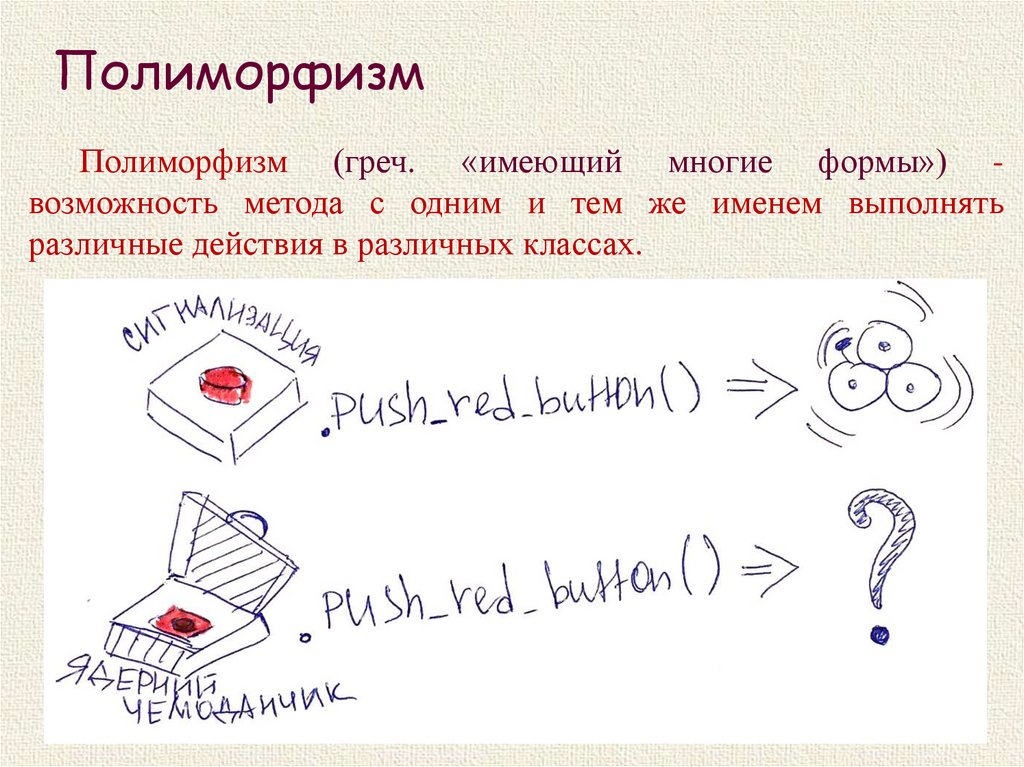 Полиморфизм
Полиморфизм (греч. «имеющий многие формы») -
возможность метода с одним и тем же именем выполнять
различные действия в различных классах.
СИГНАЛИЗАЦИЯ
.push_red_button() =>
.push_red_button() => ?
ЯДЕРНИЙ
ЧЕМОДАНЧИК